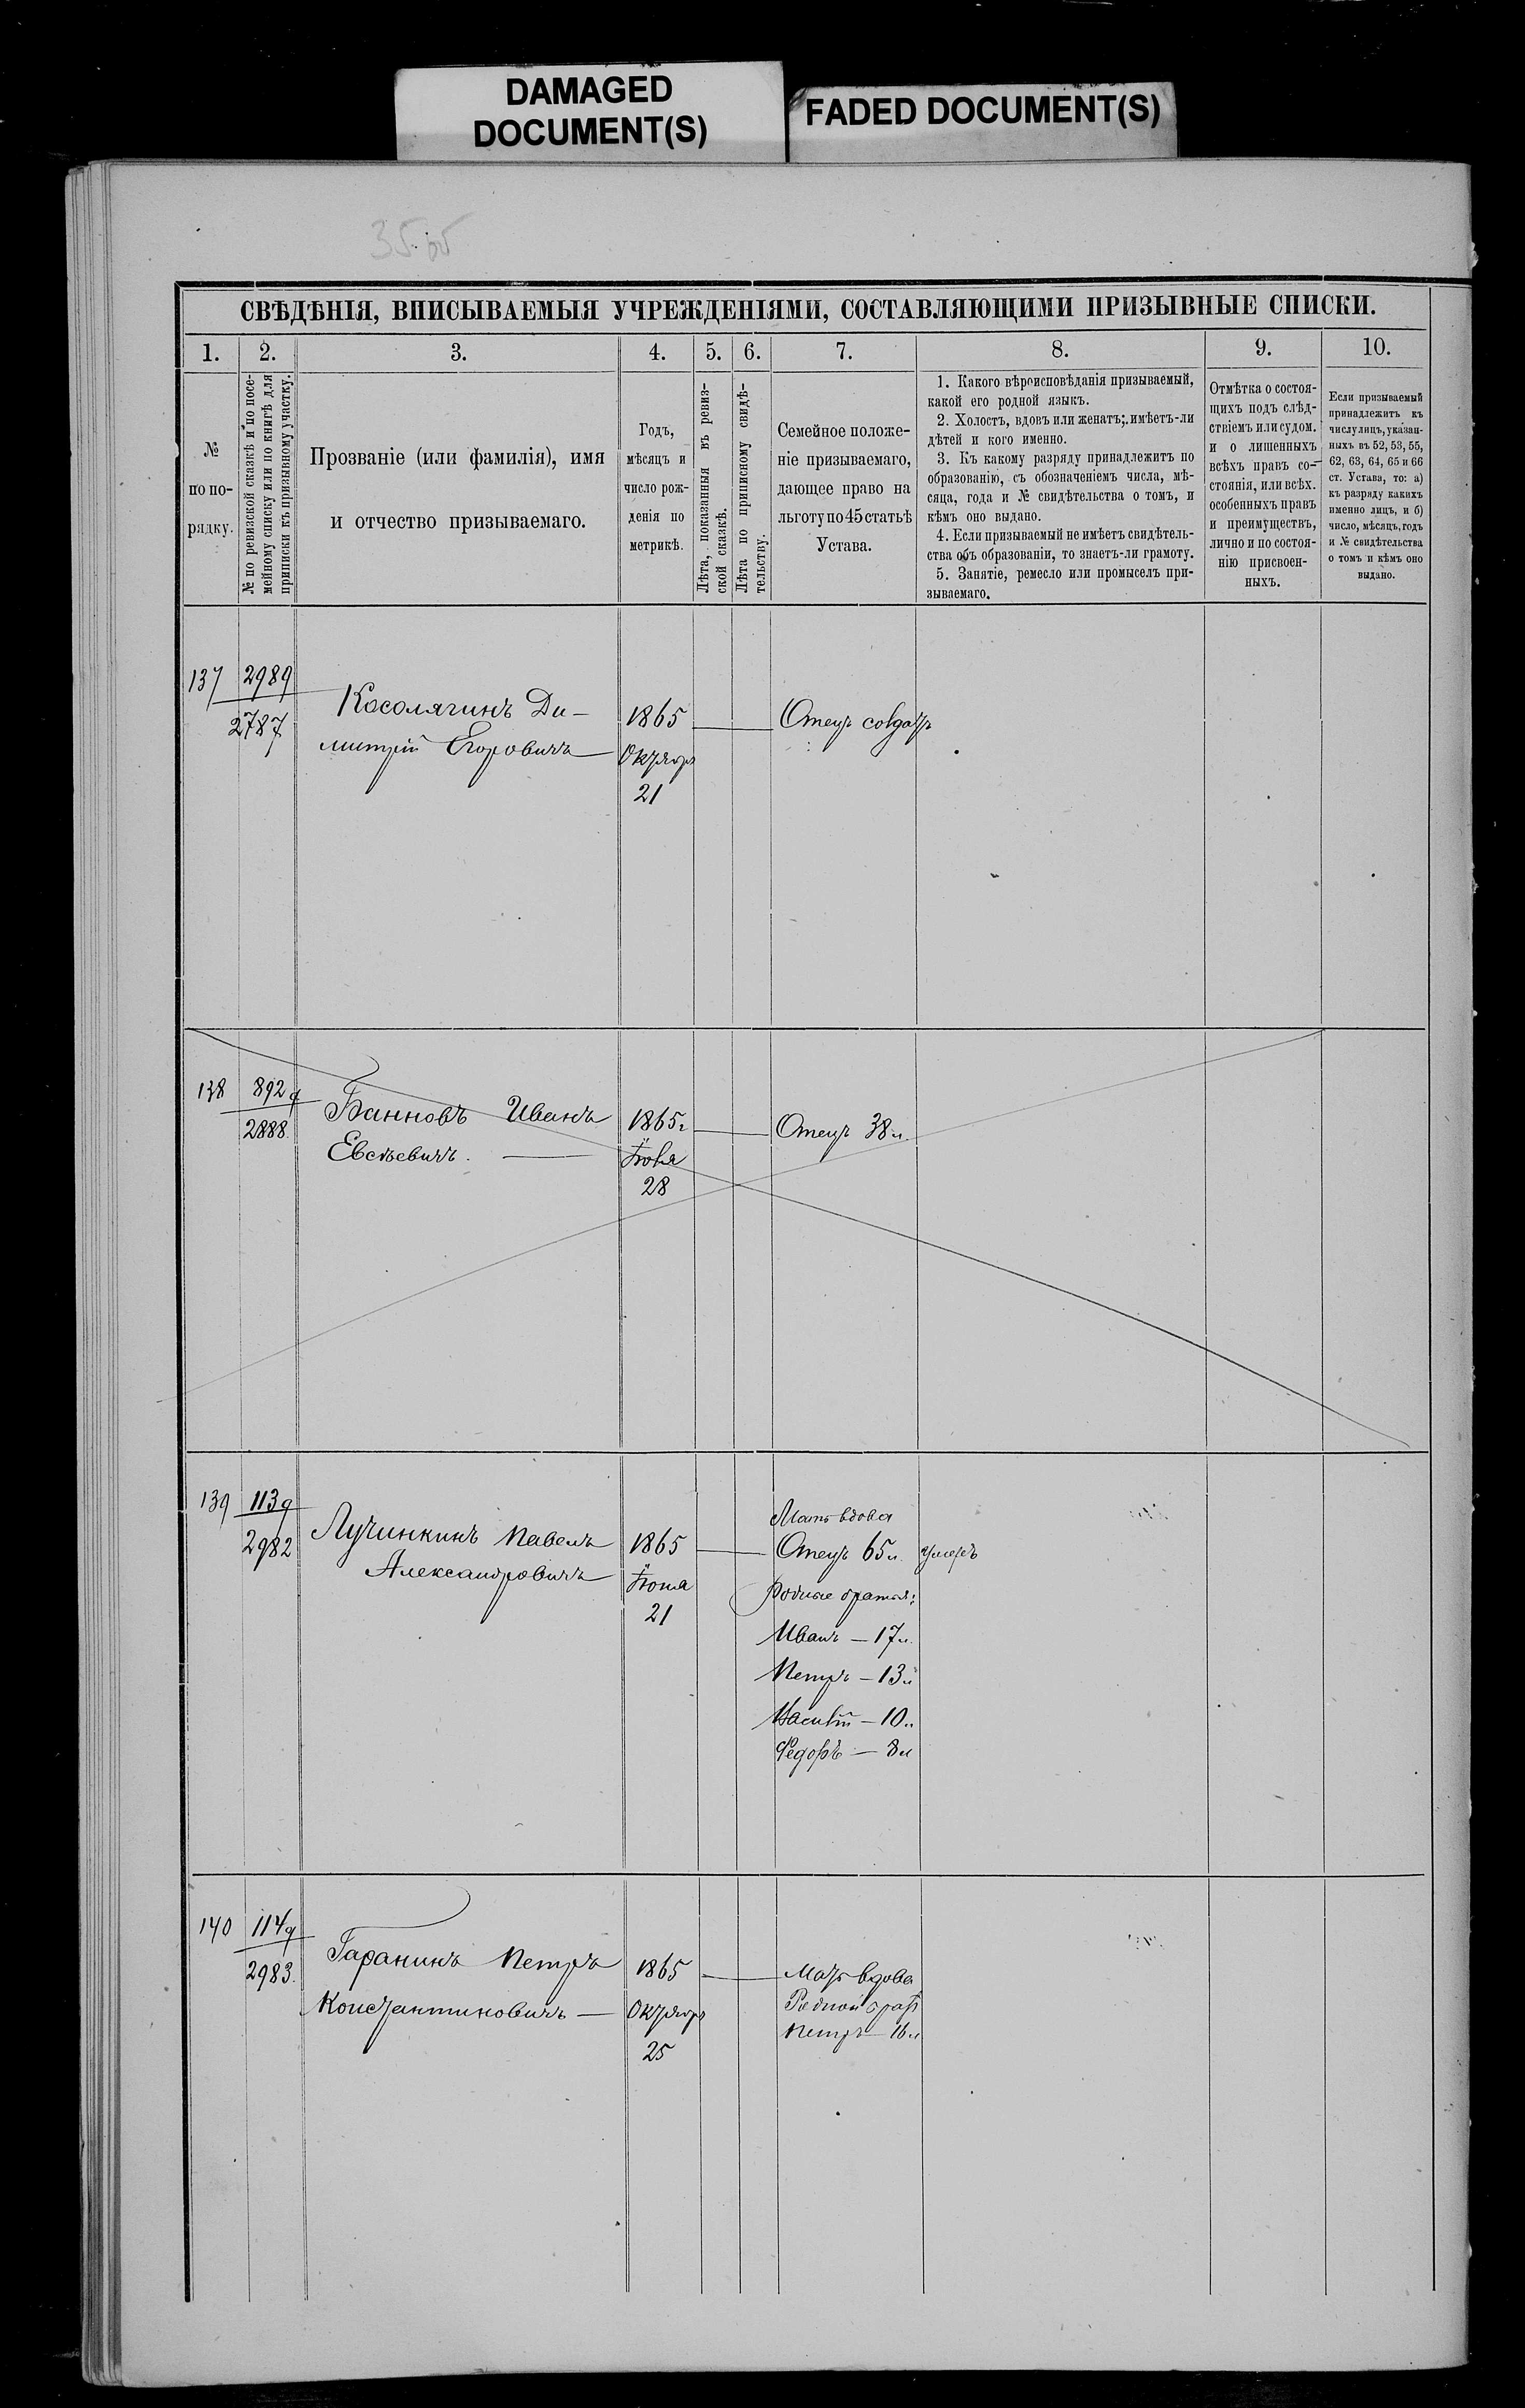 DAMAGED
DOCUMENT(S)
FADED DOCUMENT(S)
СВѢДѢНІЯ, ВПИСЫВАЕМЫЯ УЧРЕЖДЕНІЯМИ, СОСТАВЛЯЮЩИМИ ПРИЗЫВНЫЕ СПИСКИ.
1. 2. 3. 4. 5. 6. 7. 8. 9. 10.
№
по по-
рядку.
№ по ревизской сказкѣ и по посе-
мейному списку или по книгѣ для
приписки къ призывному участку.
Прозваніе (или фамилія), имя
и отчество призываемаго.
Годъ,
мѣсяцъ и
число рож-
денія по
метрикѣ.
Лѣта, показанныя въ ревиз-
ской сказкѣ.
Лѣта по приписному свидѣ-
тельству.
Семейное положе-
ніе призываемаго,
дающее право на
льготу по 45 статьѣ
Устава.
1. Какого вѣроисповѣданія призываемый,
какой его родной языкъ.
2. Холостъ, вдовъ или женатъ; имѣетъ-ли
дѣтей и кого именно.
3. Къ какому разряду принадлежитъ по
образованію, съ обозначеніемъ числа, мѣ-
сяца, года и № свидѣтельства о томъ, и
кѣмъ оно выдано.
4. Если призываемый не имѣетъ свидѣтель-
ства объ образованіи, то знаетъ-ли грамоту.
5. Занятіе, ремесло или промыселъ при-
зываемаго.
Отмѣтка о состоя-
щихъ подъ слѣд-
ствіемъ или судом.
и о лишенныхъ
всѣхъ правъ со-
стоянія, или всѣх.
особенныхъ правъ
и преимуществъ,
лично и по состоя-
нію присвоен-
ныхъ.
Если призываемый
принадлежитъ къ
числу лицъ, указан-
ныхъ въ 52, 53, 55,
62, 63, 64, 65 и 66
ст. Устава, то: а)
къ разряду какихъ
именно лицъ, и б)
число, мѣсяцъ, годъ
и № свидѣтельства
о томъ и кѣмъ оно
выдано.
137 2989
2787
Косолягинъ Ди-
митрій Егоровичъ
1865
Октября
21
Отецъ солдатъ
138 892 9
2888.
Банновъ Иванъ
Евсѣевичъ.
1865г
Іюля
28
Отецъ 38 л.
139 1139
2982
Лучинкинъ Павелъ
Александровичъ
1865
Іюня
21
Мать вдова
Отецъ 65 л. умеръ
Родные братья:
Иванъ — 17 л.
Петръ — 13 л
Василій — 10 л
Федоръ — 8 л
140 1149
2983.
Гаранинъ Петръ
Константиновичъ —
1865
Октября
25
Мать вдова
Родной братъ
Петръ — 16 л